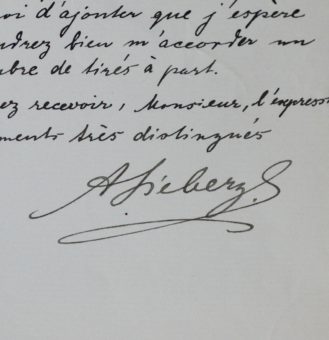 oi d'ajouter que j'espère
udrez bien m'accorder un
bre de tirés à part.
ez recevoir, Monsieur, l'express
ments très distingués
A. Lieberz